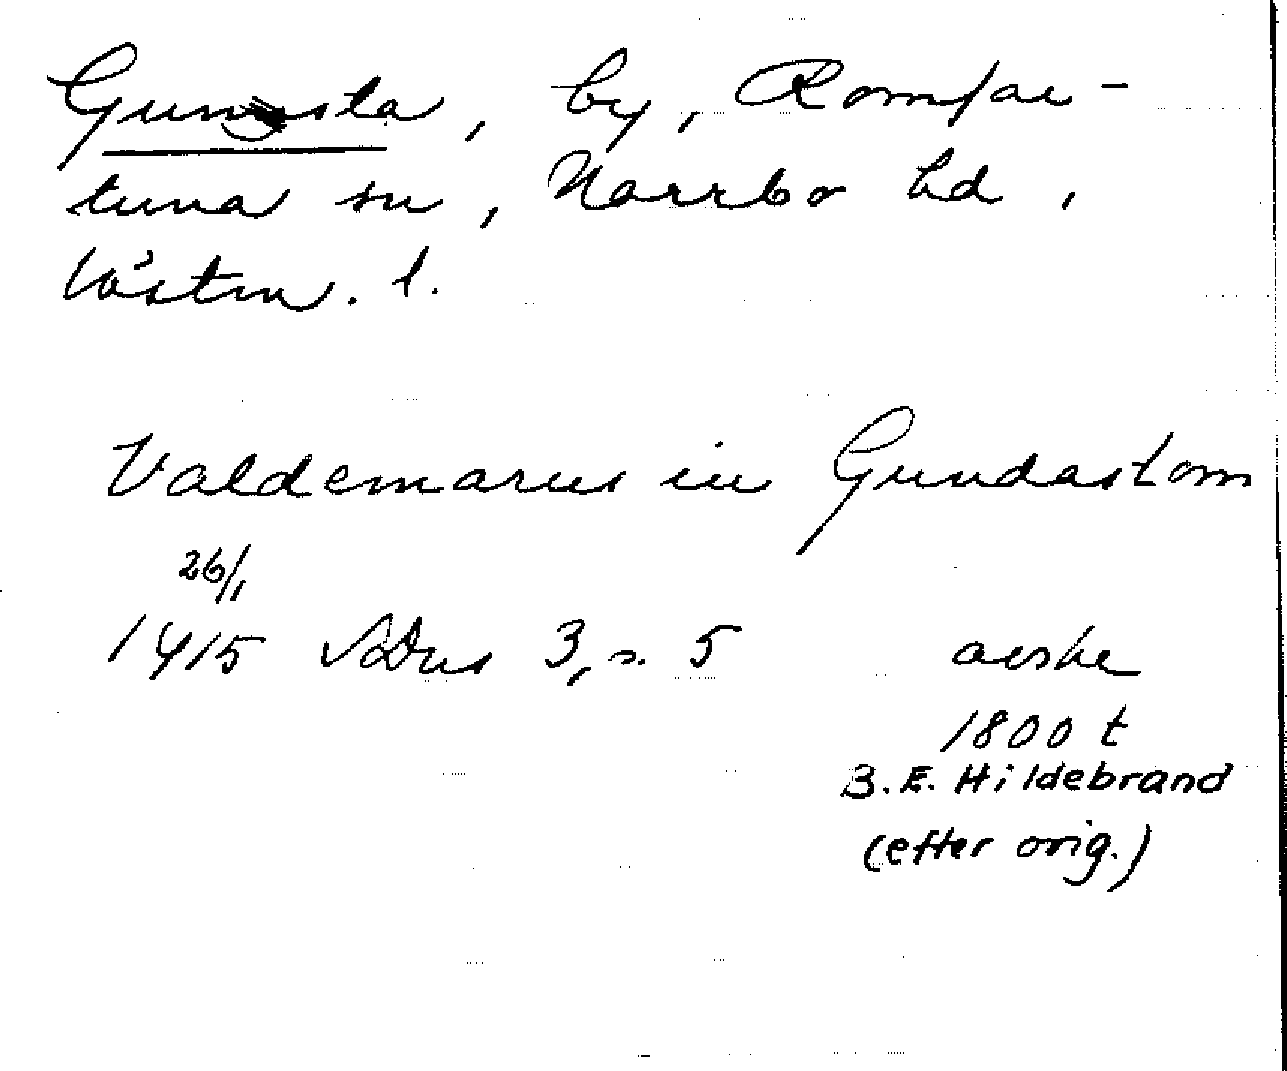 Gunsta, by, Romfar-
tuna sn, Norrbo hd,
Västm. l.
Valdemarus in Gundastom
26/1
1415 SDns 3, s. 5 avskr
1800 t
B. E. Hildebrand
(efter orig.)